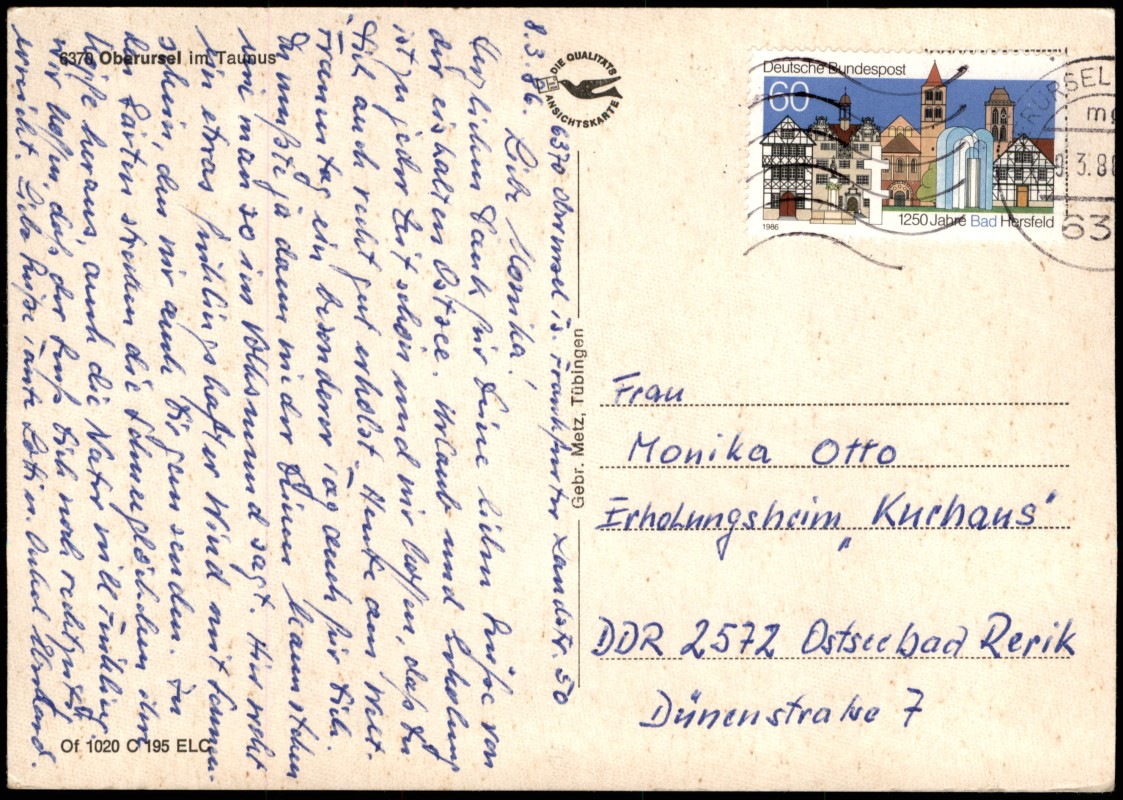 6370 Oberursel im Taunus
8.3.86. 6370 Oberursel is. Frankfurter Landstr. 50
Liebe Monika!
Herzlichen Dank für Deine lieben Grüße von
der eiskalten Ostsee. Urlaub und Erholung
ist zu jeder Zeit schön und wir hoffen, daß Du
Dich auch recht gut erholst. Heute am Welt-
frauentag ein besonderer Tag auch für Dich.
Du mußt ja dann wieder Deinen Mann stehen
wie man so im Volksmund sagt. Hier weht
ein etwas frühlingshafter Wind mit Sonnen-
schein, den wir auch Dir gern senden. Im
den Gärten strecken die Schneeglöckchen ihre
Köpfe heraus, auch die Natur will Frühling.
Wir hoffen, daß der Gruß Dich noch rechtzeitig
erreicht. Liebe Grüße Tante Lotti u. Onkel
DIE QUALITÄTS
ANSICHTSKARTE
Gebr. Metz, Tübingen
Of 1020 C 195 ELC
Deutsche Bundespost
60
1250 Jahre Bad Hersfeld
1986
URSEL
3.86
63
Frau
Monika Otto
Erholungsheim „Kurhaus"
DDR 2572 Ostseebad Rerik
Dünenstraße 7